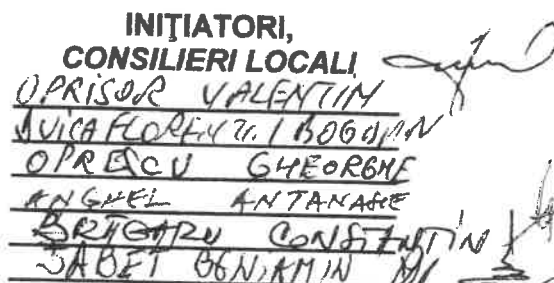 INIȚIATORI,
CONSILIERI LOCALI
OPRISOR VALENTIN
BOGDAN
OPRESCU GHEORGHE
ANGHEL ANTANASIE
CONSTANTIN
SABET BENIAMIN